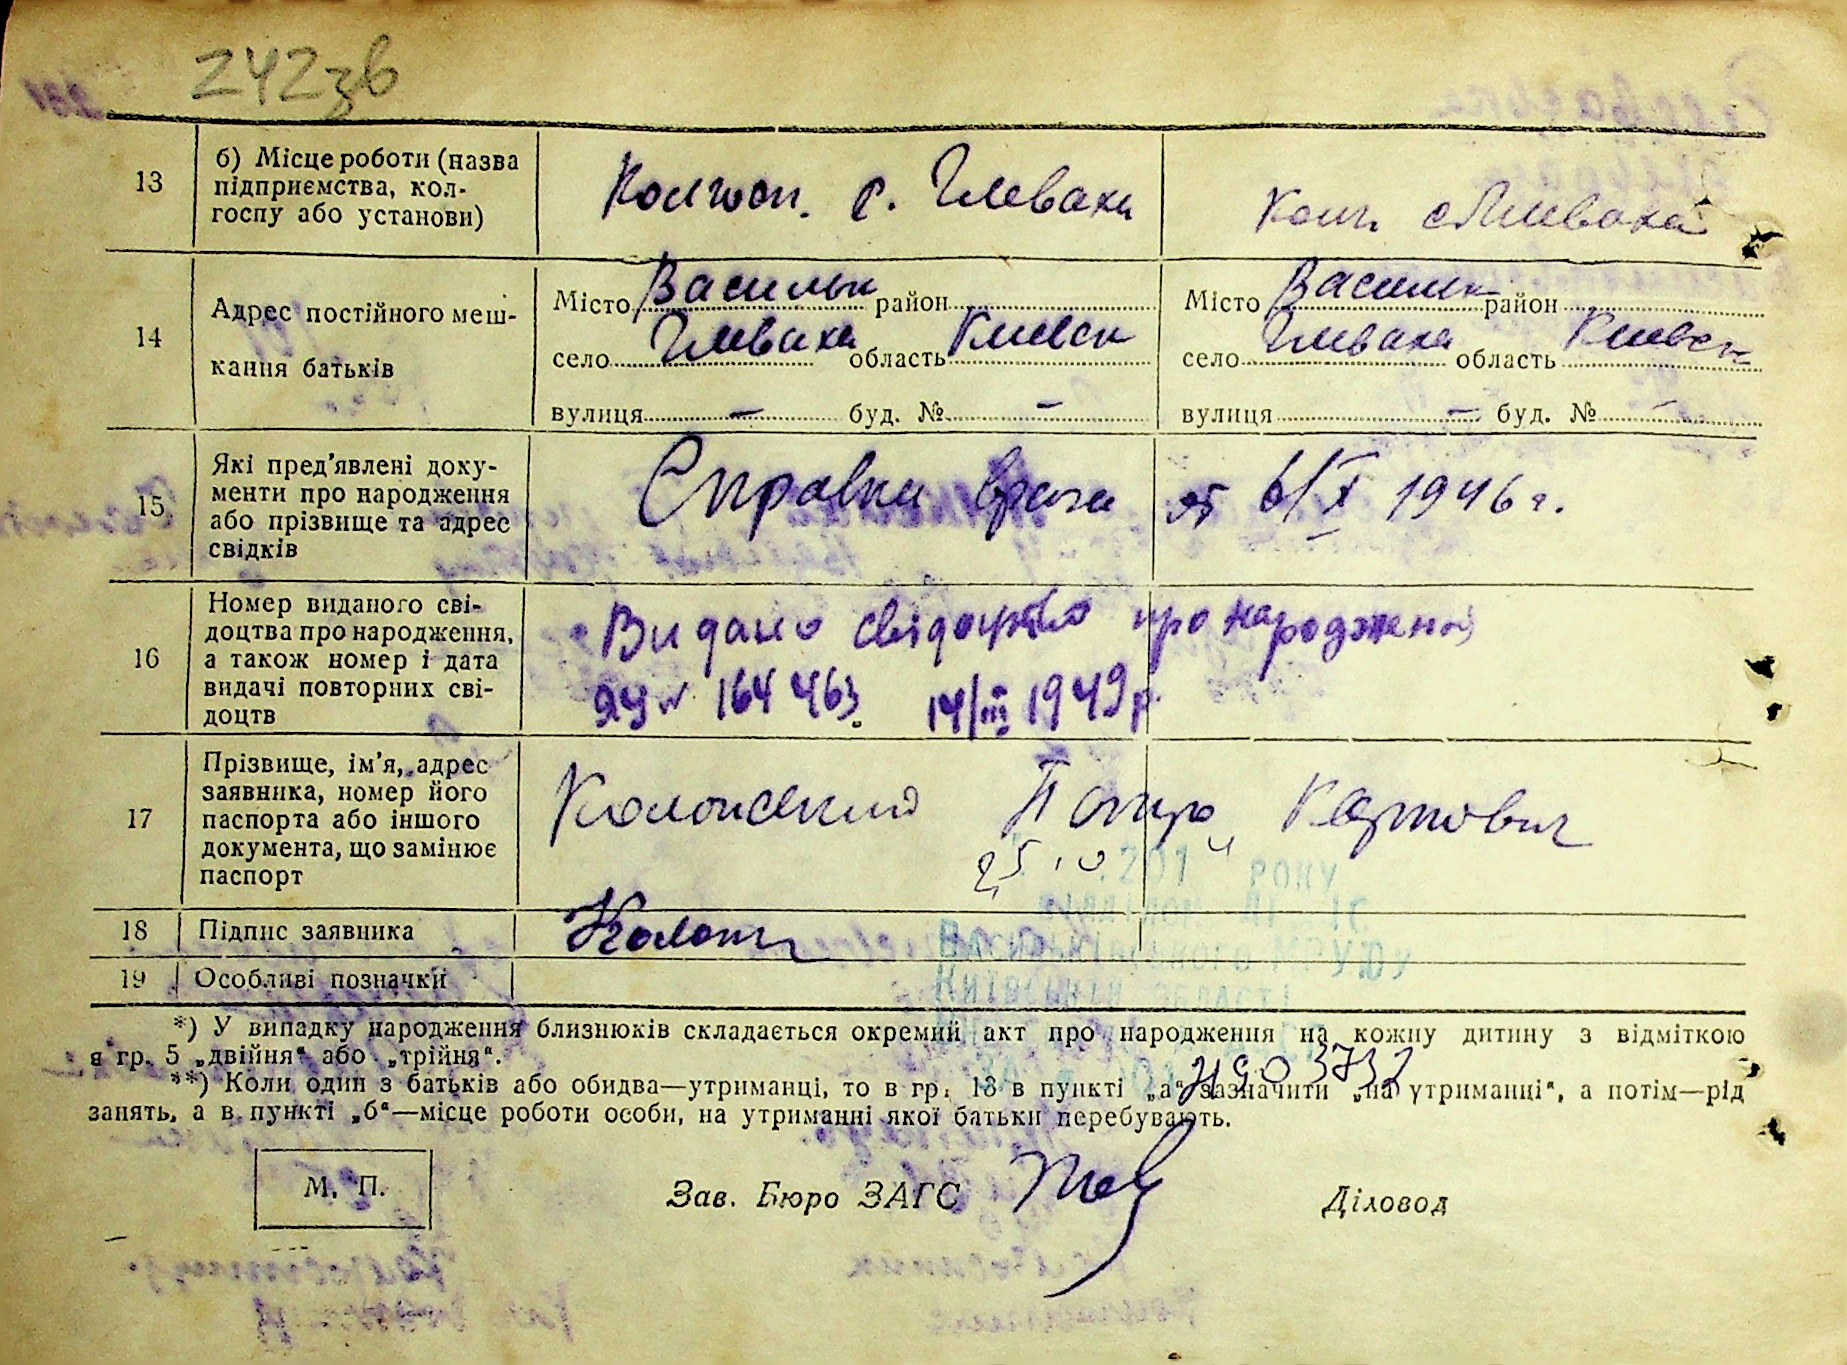 242зв
13
б) Місце роботи (назва
підприємства, кол-
госпу або установи)
Колгосп. с. Глеваха
Колг. с Глеваха
14
Адрес постійного меш-
кання батьків
Місто Васильк район
село Глеваха область Киевск
вулиця — буд. № —
Місто Васильк район
село Глеваха область Киевск
вулиця — буд. №
15
Які пред’явлені доку-
менти про народження
або прізвище та адрес
свідків
Справка врача от 6/X 1946 г.
16
Номер виданого сві-
доцтва про народження,
а також номер і дата
видачі повторних сві-
доцтв
Видано свідоцтво про народження
ЯУ № 164463 14/III 1949 р.
17
Прізвище, ім’я, адрес
заявника, номер його
паспорта або іншого
документа, що замінює
паспорт
Петро Карпович
201 РОКУ
18
Підпис заявника
19
Особливі позначки
*) У випадку народження близнюків складається окремий акт про народження на кожну дитину з відміткою
в гр. 5 „двійня“ або „трійня“.
**) Коли один з батьків або обидва—утриманці, то в гр. 13 в пункті „а“ зазначити „на утриманні“, а потім—рід
занять, а в пункті „б“—місце роботи особи, на утриманні якої батьки перебувають.
М. П.
Зав. Бюро ЗАГС
Діловод